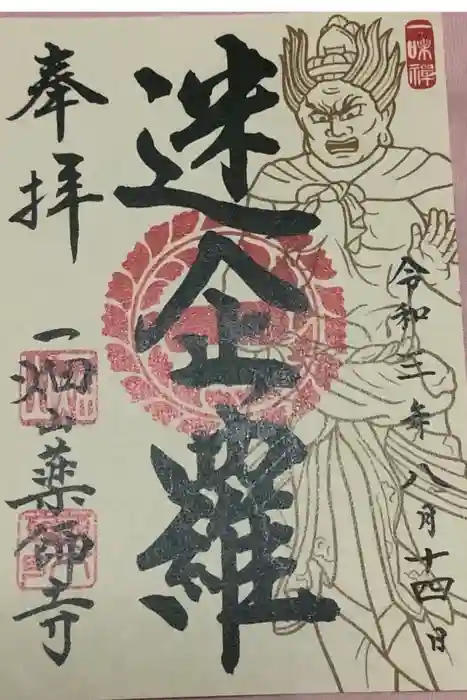 一味禪
令和三年八月十四日
迷企羅
奉拝
一畑山薬師寺